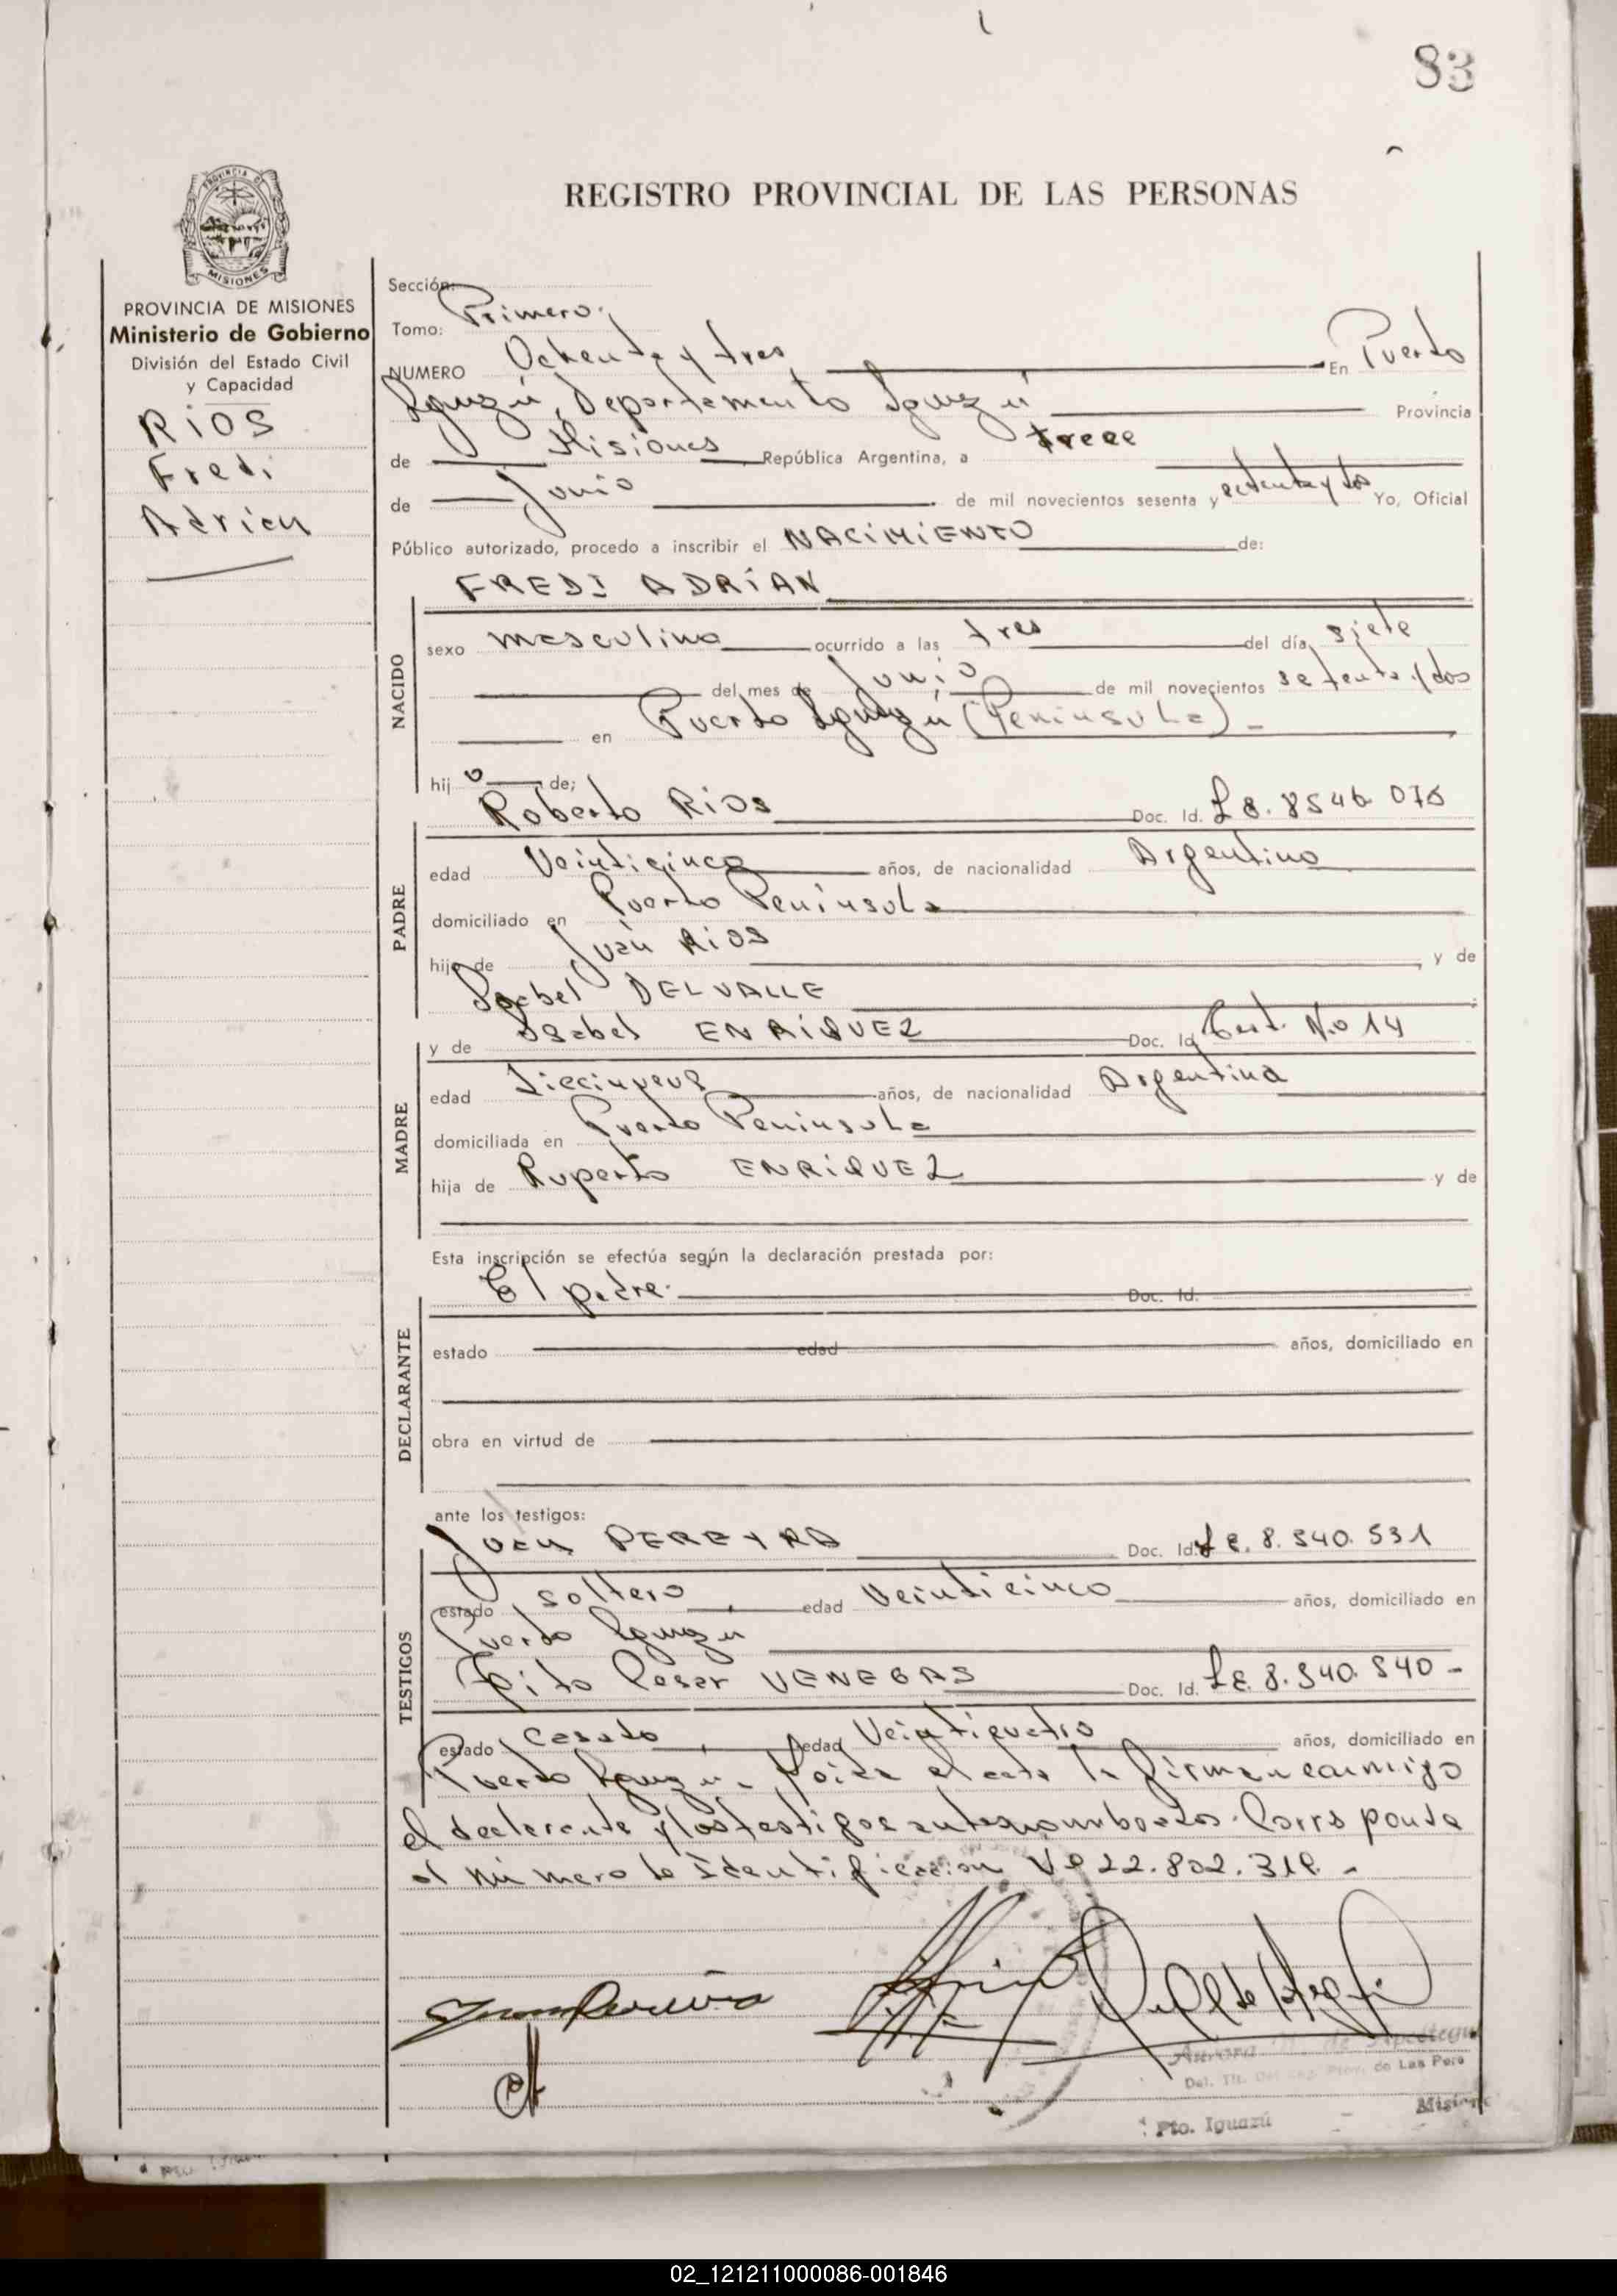 83
REGISTRO PROVINCIAL DE LAS PERSONAS
PROVINCIA DE
MISIONES
PROVINCIA DE MISIONES
Ministerio de Gobierno
División del Estado Civil
y Capacidad
RIOS
Fredi
Adrian
Sección:
Tomo: Primero.
NUMERO Ochenta y tres En Puerto
Iguazú, Departamento Iguazú Provincia
de Misiones República Argentina, a trece
de Junio de mil novecientos sesenta y setenta y dos Yo, Oficial
Público autorizado, procedo a inscribir el NACIMIENTO de:
FREDI ADRIAN
NACIDO
sexo masculino ocurrido a las tres del día siete
del mes de Junio de mil novecientos setenta y dos
en Puerto Iguazú (Peninsula) -
hij o de;
Roberto Rios Doc. Id. 8546 076
PADRE
edad Veinticinco años, de nacionalidad Argentino
domiciliado en Puerto Peninsula
hijo de Juan Rios, y de
Isabel DELVALLE
y de Isabel ENRIQUEZ Doc. Id. Cert. No 14
MADRE
edad Diecinueve años, de nacionalidad Argentina
domiciliada en Puerto Peninsula
hija de Ruperto ENRIQUEZ y de
Esta inscripción se efectúa según la declaración prestada por:
El padre. Doc. Id.
DECLARANTE
estado edad años, domiciliado en
obra en virtud de
ante los testigos:
Juan PEREYRA Doc. Id. LE. 8.540.531
TESTIGOS
estado soltero, edad Veinticinco años, domiciliado en
Puerto Iguazu
Tito Cesar VENEGAS Doc. Id. LE. 8.540.540 -
estado Casado, edad Veinticuatro años, domiciliado en
Puerto Iguazu. Leida el acta la firman conmigo
el declarante y los testigos antes nombrados. Corresponde
al número de Identificacion 22.802.318. -
Aurora de Apestegui
Del. Tit. Del Reg. Prov. de Las Pers
Pto. Iguazú - Misiones
02_121211000086-001846